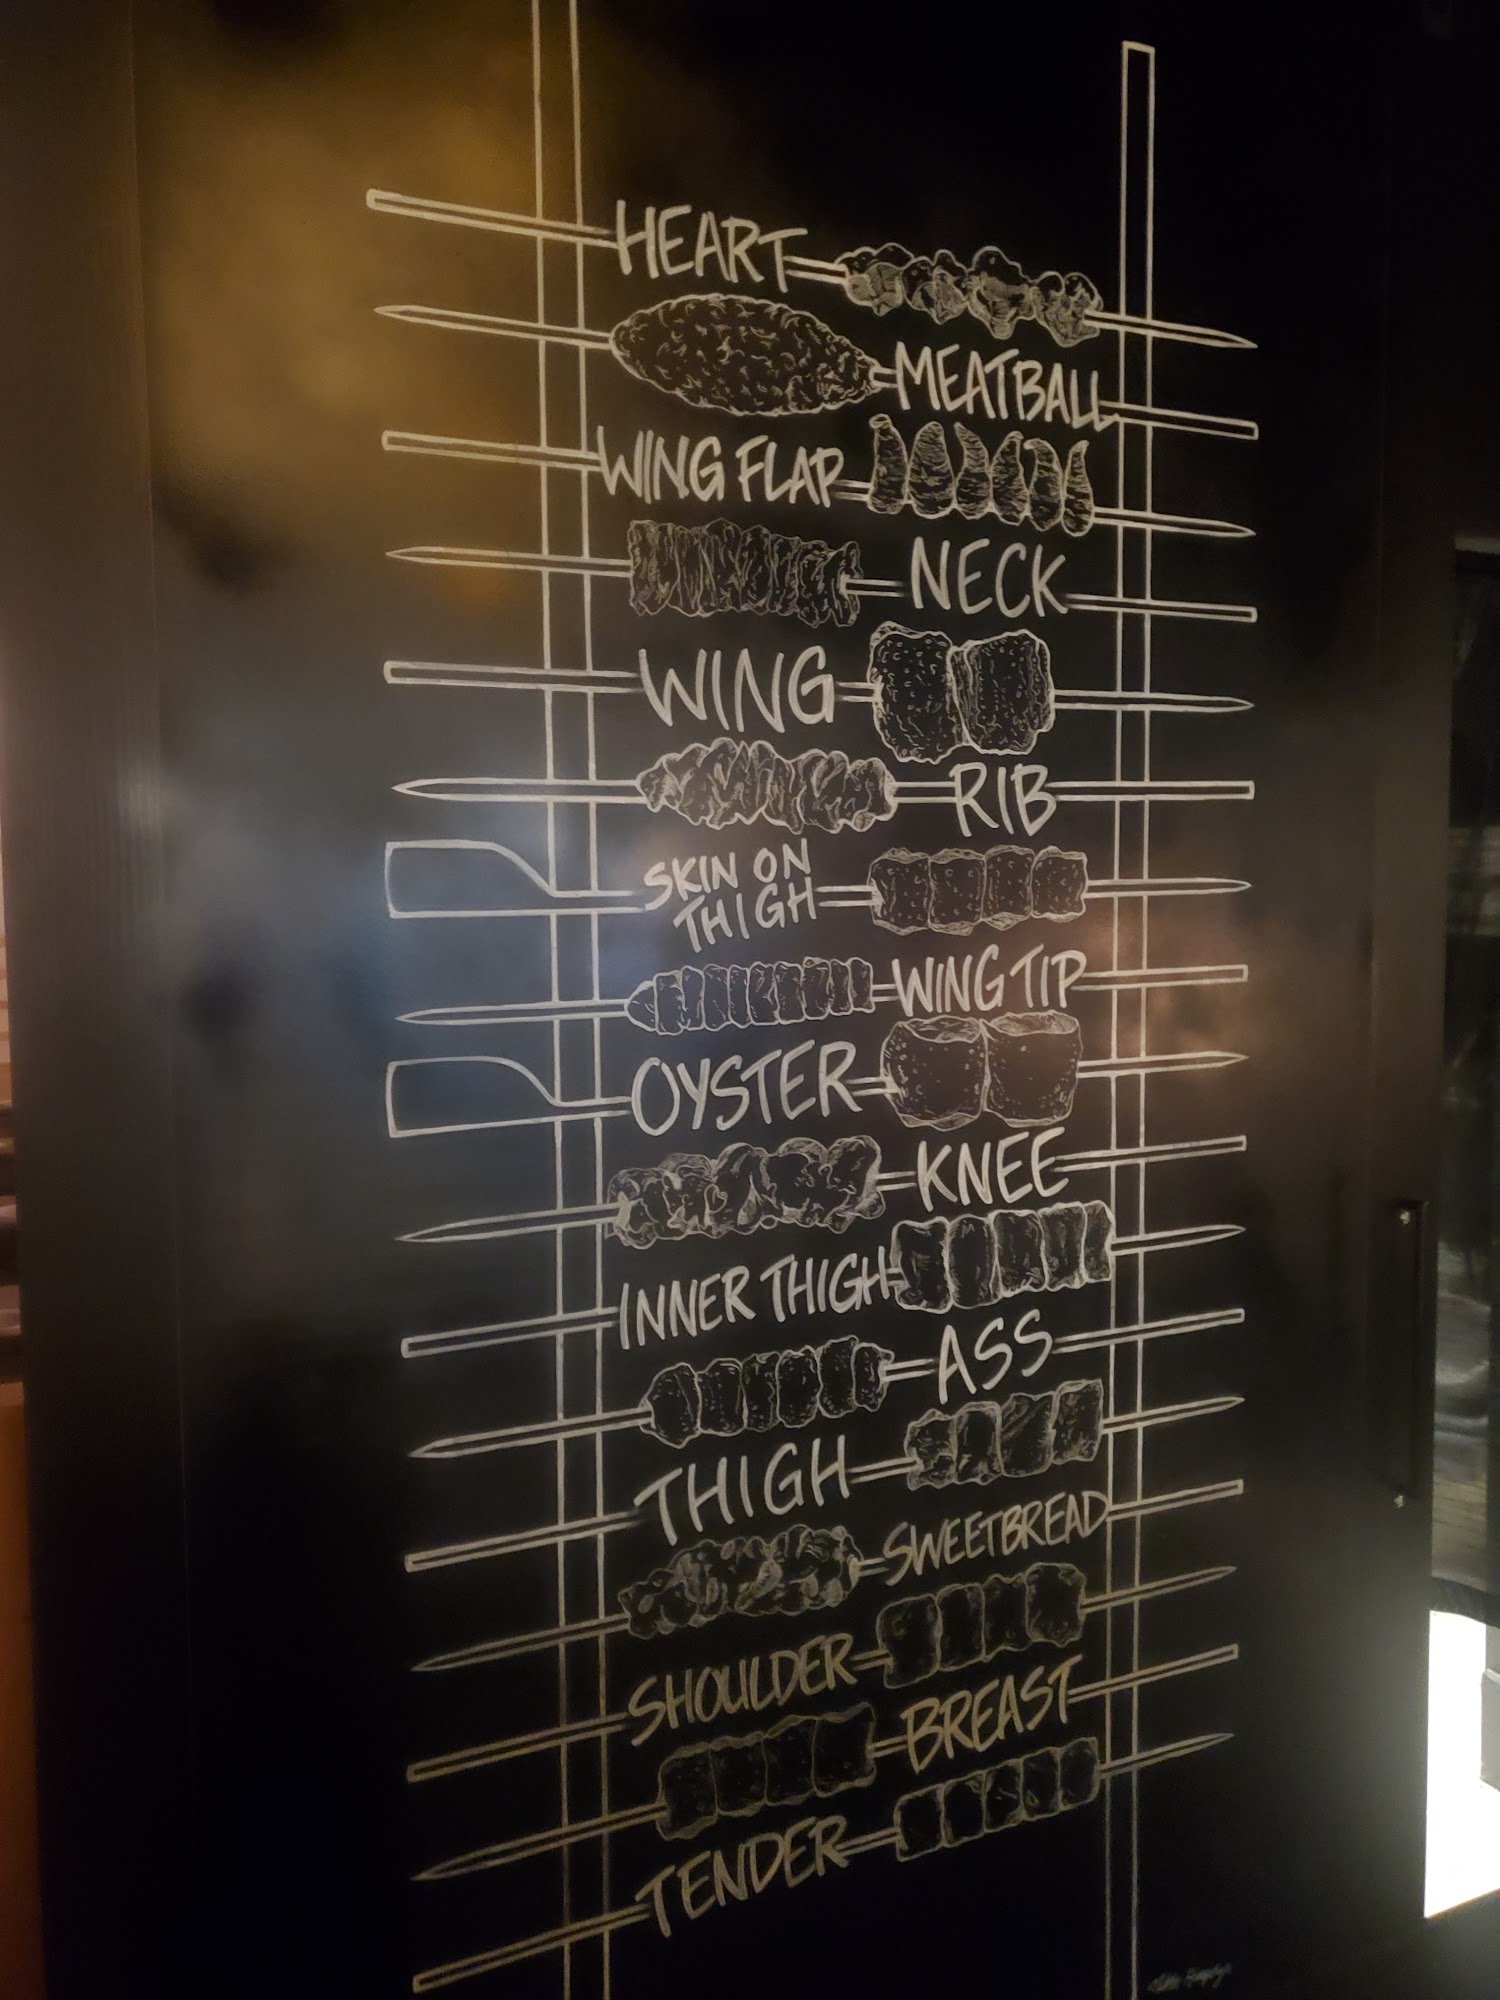 HEART
MEATBALL
WING FLAP
NECK
WING
RIB
SKIN ON
THIGH
WING TIP
OYSTER
KNEE
INNER THIGH
ASS
THIGH
SWEETBREAD
SHOULDER
BREAST
TENDER